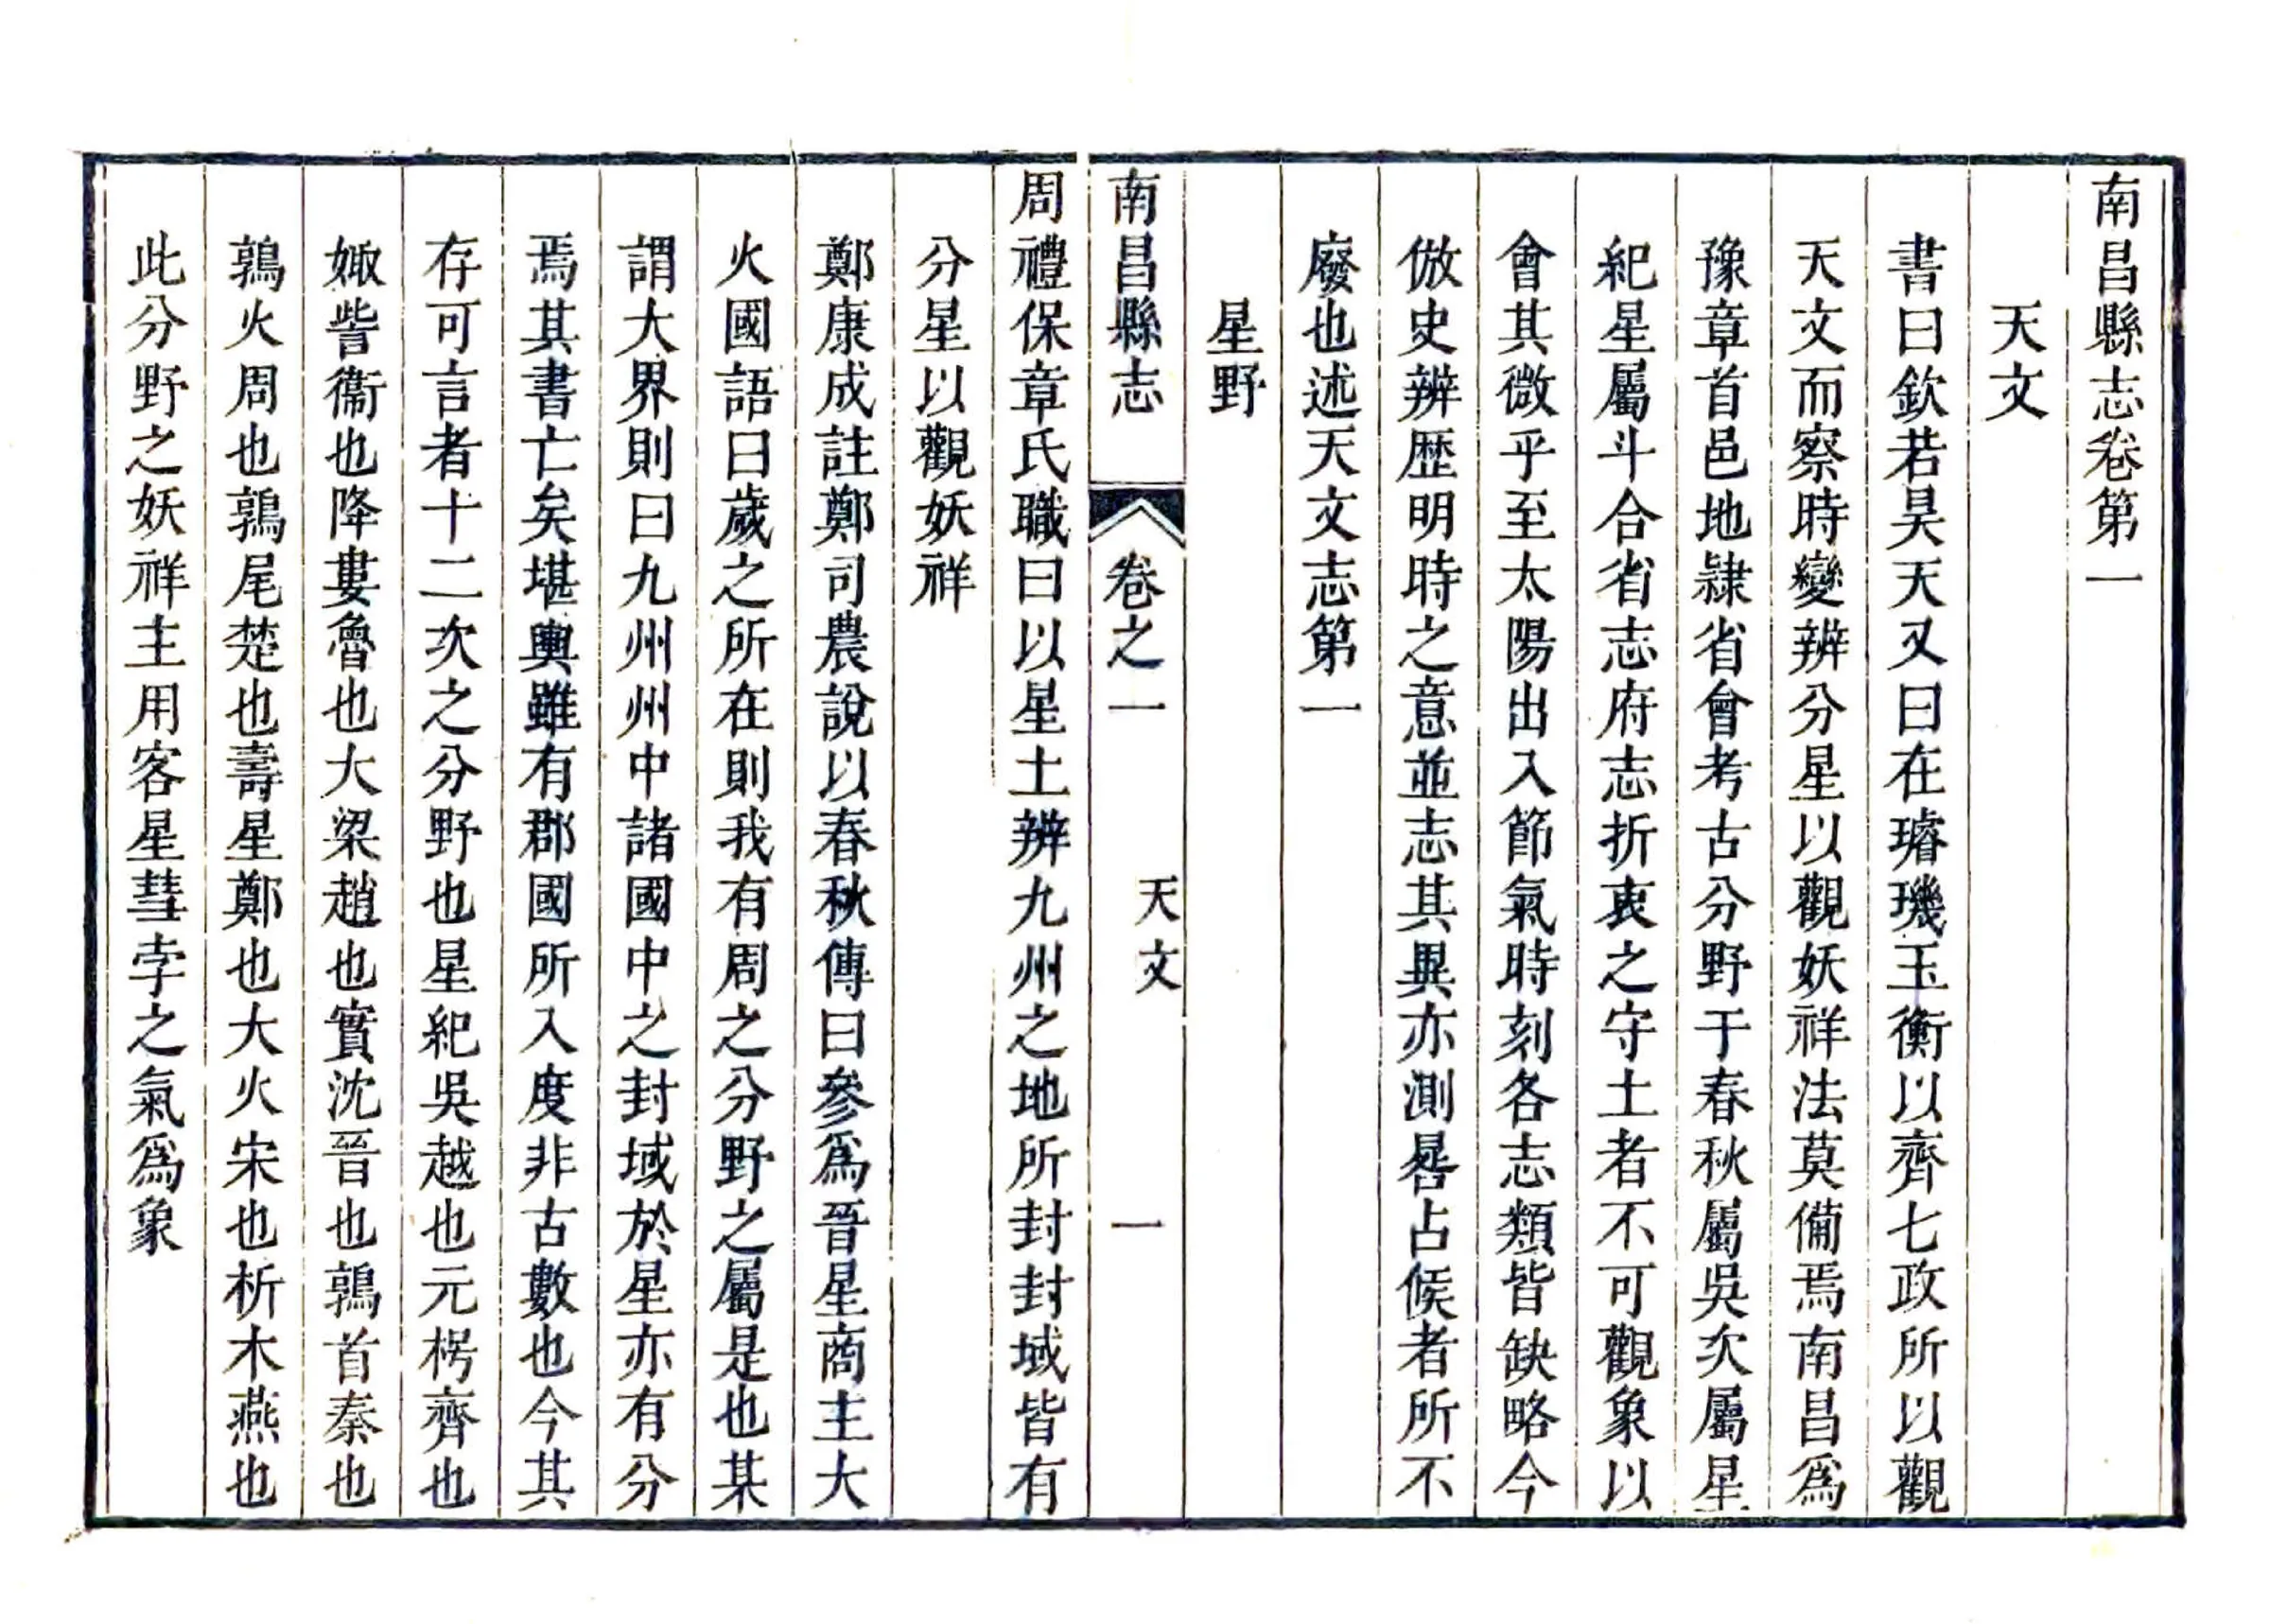 南昌縣志卷第一
天文
書曰欽若昊天又曰在璿璣玉衡以齊七政所以觀
天文而察時變辨分星以觀妖祥法莫備焉南昌爲
豫章首邑地隸省會考古分野于春秋屬吳次屬星
紀星屬斗合省志府志折衷之守土者不可觀象以
會其微乎至太陽出入節氣時刻各志類皆缺略今
倣史辨歷明時之意並志其異亦測晷占候者所不
廢也述天文志第一
星野
南昌縣志 卷之一 天文 一
周禮保章氏職曰以星土辨九州之地所封封域皆有
分星以觀妖祥
鄭康成註鄭司農說以春秋傳曰參爲晉星商主大
火國語曰歲之所在則我有周之分野之屬是也某
謂大界則曰九州州中諸國中之封域於星亦有分
焉其書亡矣堪輿雖有郡國所入度非古數也今其
存可言者十二次之分野也星紀吳越也元枵齊也
娵訾衞也降婁魯也大梁趙也實沈晉也鶉首秦也
鶉火周也鶉尾楚也壽星鄭也大火宋也析木燕也
此分野之妖祥主用客星彗孛之氣爲象